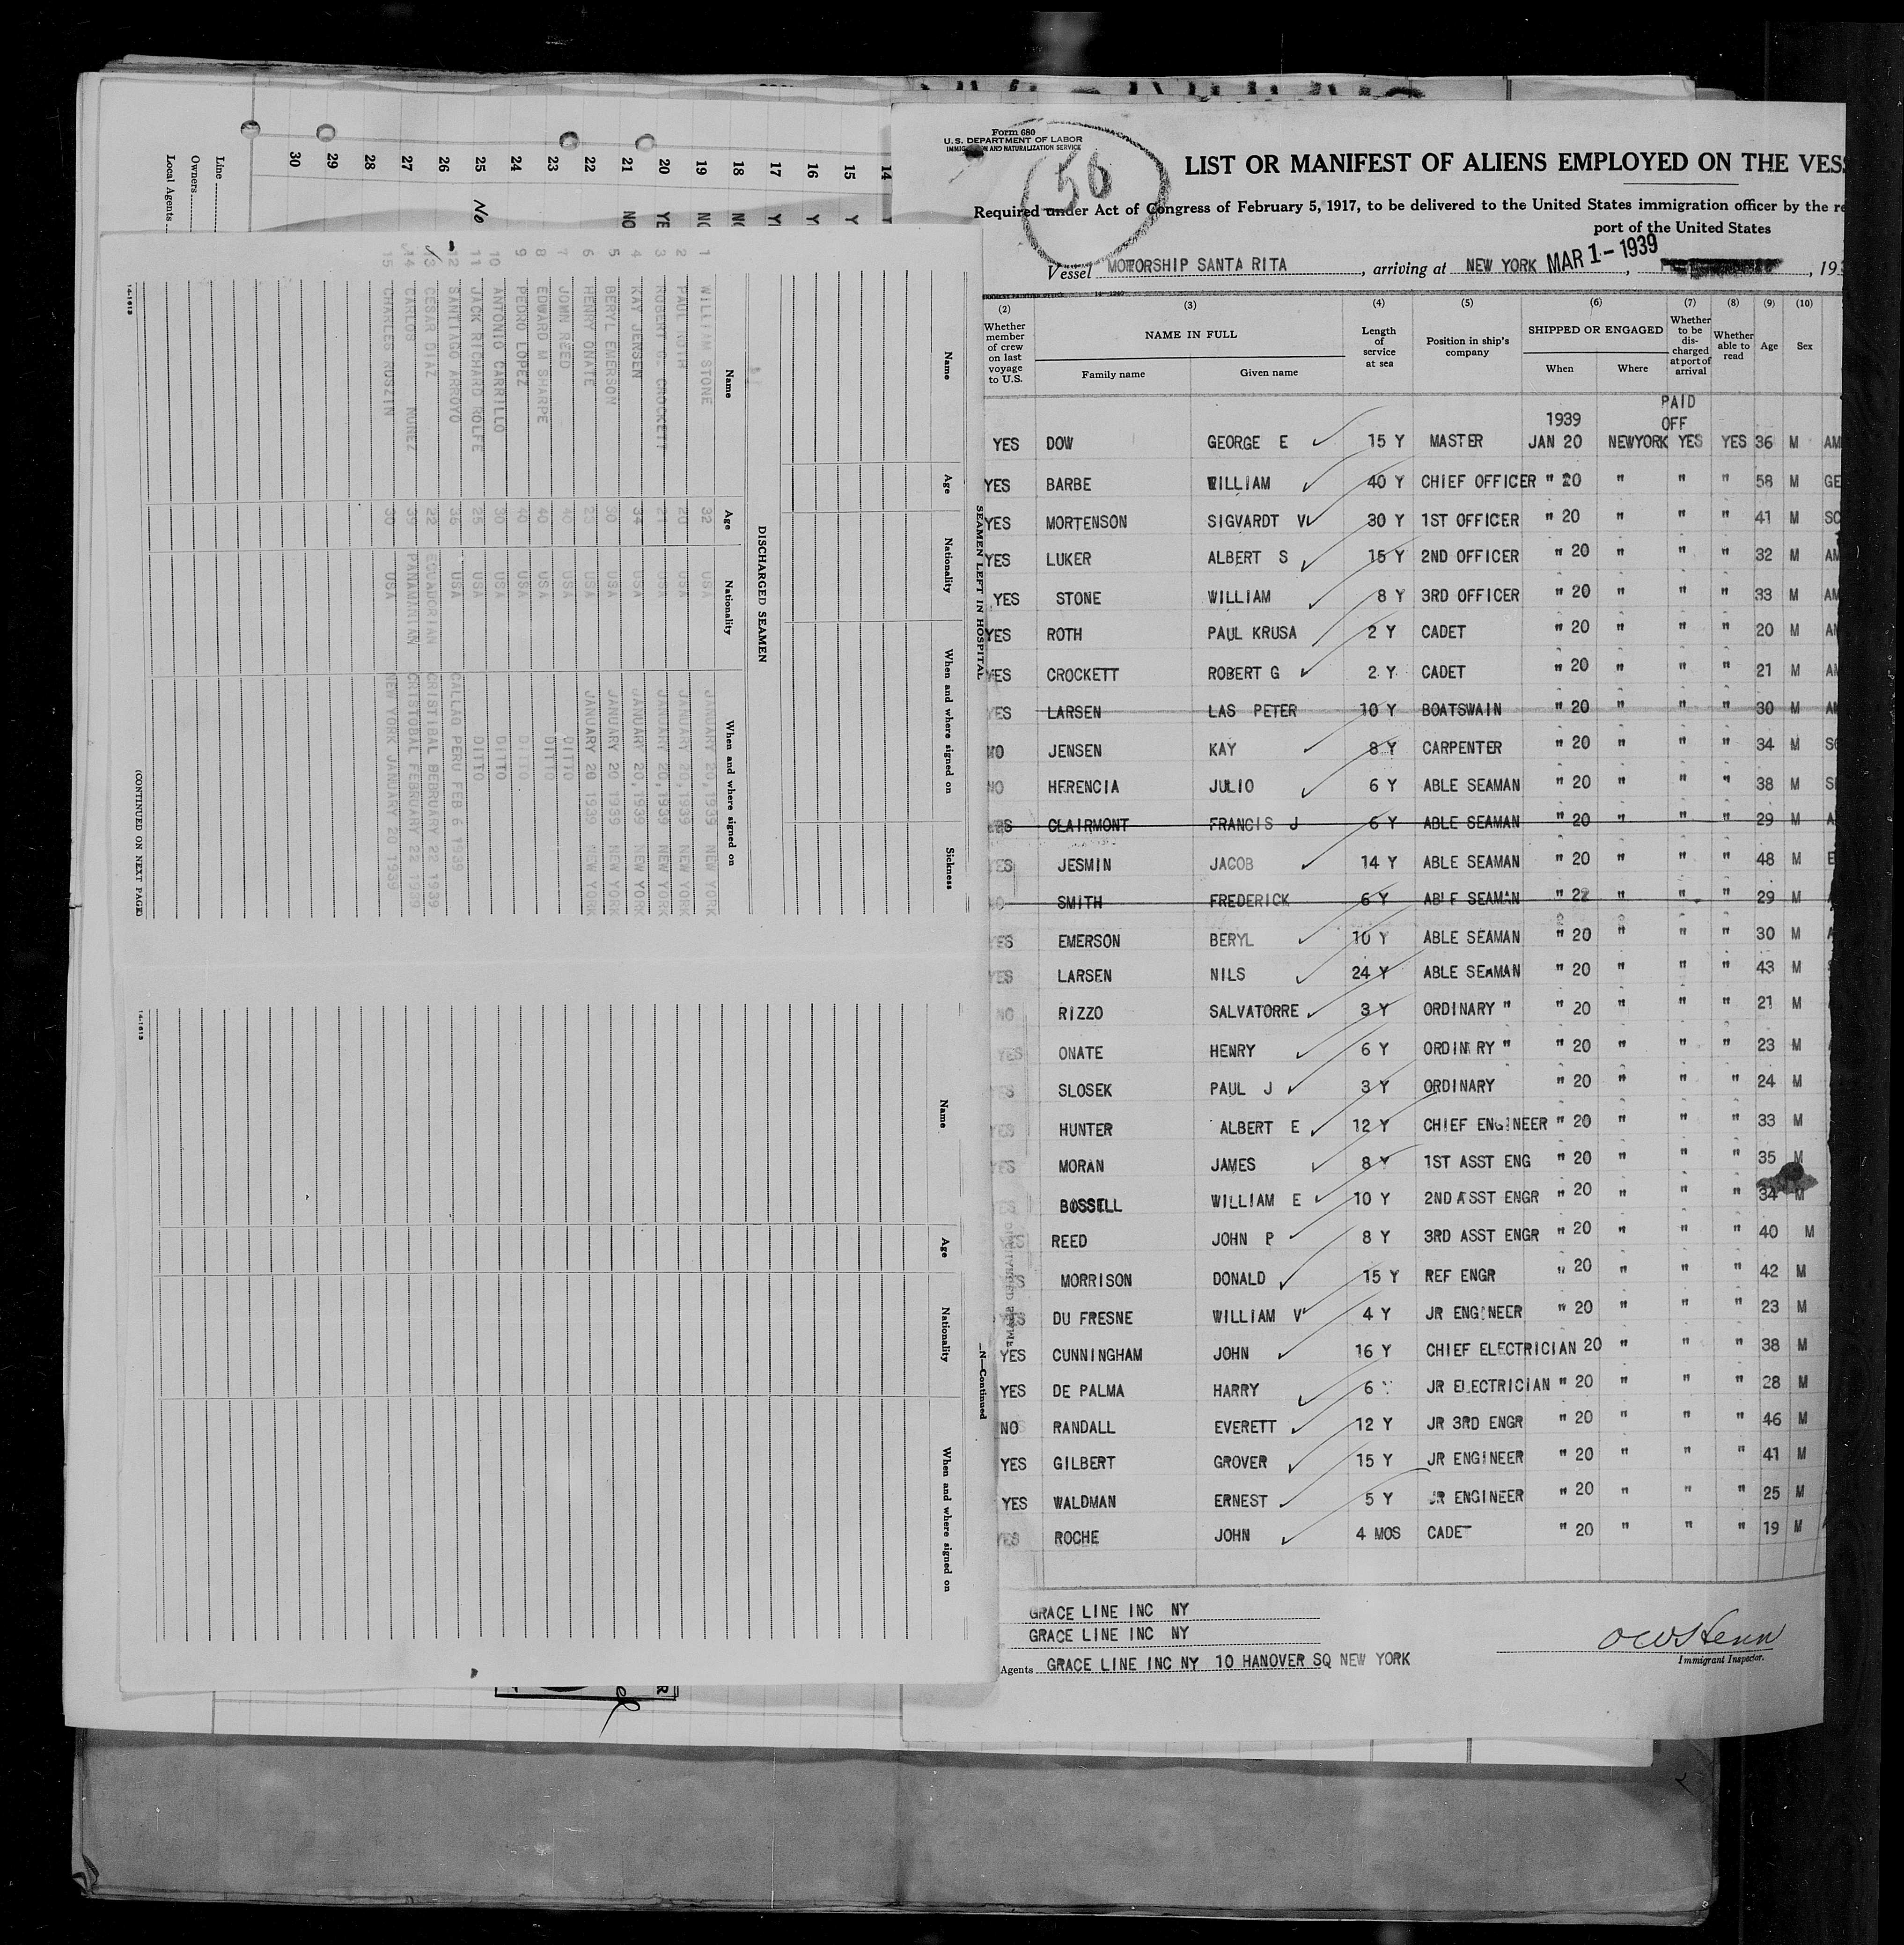 Form 680
U.S. DEPARTMENT OF LABOR
IMMIGRATION AND NATURALIZATION SERVICE
56
LIST OR MANIFEST OF ALIENS EMPLOYED ON THE VES
Required under Act of Congress of February 5, 1917, to be delivered to the United States immigration officer by the re
port of the United States
Vessel MOTORSHIP SANTA RITA, arriving at NEW YORK MAR 1 - 1939, 193
(2) (3) (4) (5) (6) (7) (8) (9) (10)
Whether member of crew on last voyage to U.S. NAME IN FULL Family name Given name Length of service at sea Position in ship's company SHIPPED OR ENGAGED When Where Whether to be discharged at port of arrival Whether able to read Age Sex
1939 PAID OFF
YES DOW GEORGE E 15 Y MASTER JAN 20 NEWYORK YES YES 36 M AM
YES BARBE WILLIAM 40 Y CHIEF OFFICER " 20 " " " 58 M GE
YES MORTENSON SIGVARDT V 30 Y 1ST OFFICER " 20 " " " 41 M SC
YES LUKER ALBERT S 15 Y 2ND OFFICER " 20 " " " 32 M AM
YES STONE WILLIAM 8 Y 3RD OFFICER " 20 " " " 33 M AM
YES ROTH PAUL KRUSA 2 Y CADET " 20 " " " 20 M AM
YES CROCKETT ROBERT G 2 Y CADET " 20 " " " 21 M AM
YES LARSEN LAS PETER 10 Y BOATSWAIN " 20 " " " 30 M AM
NO JENSEN KAY 8 Y CARPENTER " 20 " " " 34 M SC
NO HERENCIA JULIO 6 Y ABLE SEAMAN " 20 " " " 38 M S
YES CLAIRMONT FRANCIS J 6 Y ABLE SEAMAN " 20 " " " 29 M A
YES JESMIN JACOB 14 Y ABLE SEAMAN " 20 " " " 48 M E
NO SMITH FREDERICK 6 Y ABLE SEAMAN " 22 " " " 29 M
YES EMERSON BERYL 10 Y ABLE SEAMAN " 20 " " " 30 M
YES LARSEN NILS 24 Y ABLE SEAMAN " 20 " " " 43 M
NO RIZZO SALVATORRE 3 Y ORDINARY " " 20 " " " 21 M
YES ONATE HENRY 6 Y ORDINARY " " 20 " " " 23 M
YES SLOSEK PAUL J 3 Y ORDINARY " 20 " " " 24 M
YES HUNTER ALBERT E 12 Y CHIEF ENGINEER " 20 " " " 33 M
YES MORAN JAMES 8 Y 1ST ASST ENG " 20 " " " 35 M
WILLIAM E 10 Y 2ND ASST ENGR " 20 " " " 34 M
YES REED JOHN P 8 Y 3RD ASST ENGR " 20 " " " 40 M
YES MORRISON DONALD 15 Y REF ENGR " 20 " " " 42 M
YES DU FRESNE WILLIAM V 4 Y JR ENGINEER " 20 " " " 23 M
YES CUNNINGHAM JOHN 16 Y CHIEF ELECTRICIAN 20 " " " 38 M
YES DE PALMA HARRY 6 JR ELECTRICIAN " 20 " " " 28 M
NO RANDALL EVERETT 12 Y JR 3RD ENGR " 20 " " " 46 M
YES GILBERT GROVER 15 Y JR ENGINEER " 20 " " " 41 M
YES WALDMAN ERNEST 5 Y JR ENGINEER " 20 " " " 25 M
YES ROCHE JOHN 4 MOS CADET " 20 " " " 19 M
GRACE LINE INC NY
GRACE LINE INC NY
Agents GRACE LINE INC NY 10 HANOVER SQ NEW YORK
Immigrant Inspector.
SEAMEN LEFT IN HOSPITAL
Name Age Nationality When and where signed on Sickness
DISCHARGED SEAMEN
Name Age Nationality When and where signed on
1 WILLIAM STONE 32 USA JANUARY 20,1939 NEW YORK
2 PAUL ROTH 20 USA JANUARY 20,1939 NEW YORK
3 ROBERT G. CROCKETT 21 USA JANUARY 20,1939 NEW YORK
4 KAY JENSEN 34 USA JANUARY 20,1939 NEW YORK
5 BERYL EMERSON 30 USA JANUARY 20 1939 NEW YORK
6 HENRY ONATE 23 USA JANUARY 20 1939 NEW YORK
7 JOHN REED 40 USA DITTO
8 EDWARD M SHARPE 40 USA DITTO
9 PEDRO LOPEZ 40 USA DITTO
10 ANTONIO CARRILLO 30 USA DITTO
11 JACK RICHARD ROLFE 25 USA DITTO
12 SANTIAGO ARROYO 36 USA CALLAO PERU FEB 6 1939
13 CESAR DIAZ 22 ECUADORIAN CRISTIBAL BEBRUARY 22 1939
14 CARLOS NUNEZ 39 PANAMANIAN CRISTOBAL FEBRUARY 22 1939
15 CHARLES RUSZIN 30 USA NEW YORK JANUARY 20 1939
14-1613
(CONTINUED ON NEXT PAGE)
N—Continued
Name Age Nationality When and where signed on
14-1613
14
15 Y
16 Y
17 Y
18 NO
19 NO
20 YE
21 NO
22
23
24
25 No
26
27
28
29
30
Line
Owners
Local Agents